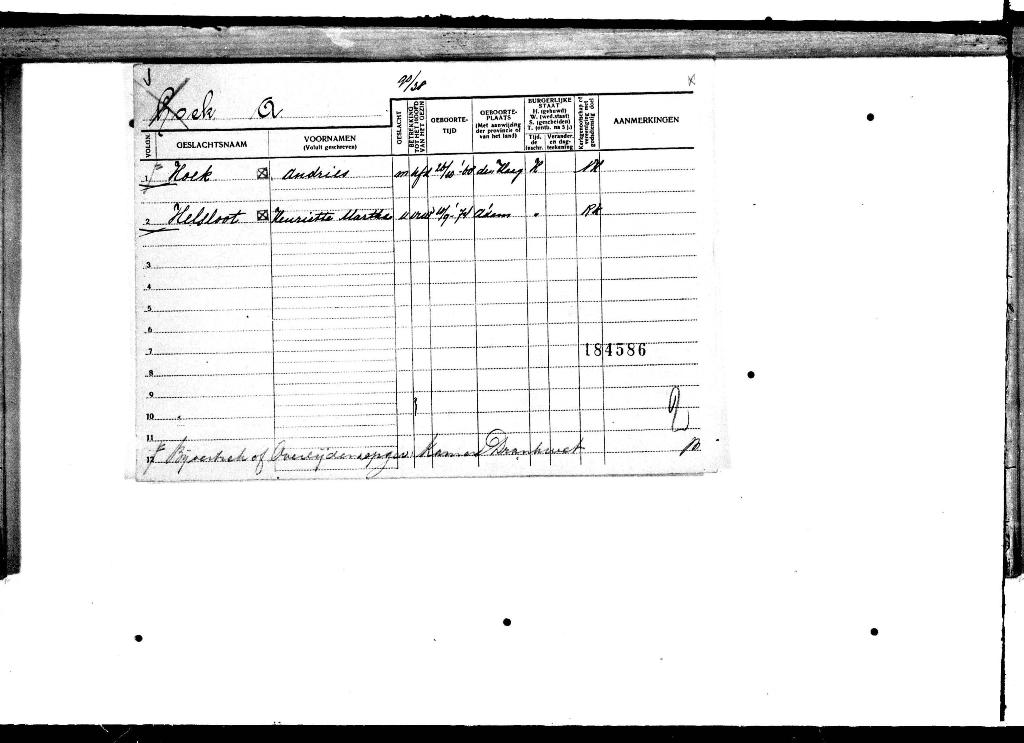 90/38
Hoek A
VOLGN.
GESLACHTSNAAM
VOORNAMEN
(Voluit geschreven)
GESLACHT
BETREKKING TOT HET HOOFD VAN HET GEZIN
GEBOORTE-
TIJD
GEBOORTE-
PLAATS
(Met aanwijzing
der provincie of
van het land)
BURGERLIJKE
STAAT
H. (gehuwd)
W. (wed.staat)
S. (gescheiden)
T. (ontb. na 5 j.)
Tijd. de inschr.
Verander. en dag-teekening
Kerkgenootschap of
AANMERKINGEN
1 Hoek Andries m hfd den Haag H NH
2 Helsloot Henriette Martha v vrw A'dam " RK
3
4
5
6
7 184586
8
9
10
11
12 Bij vertrek of Overlijden opgev. Kamer Drankwet